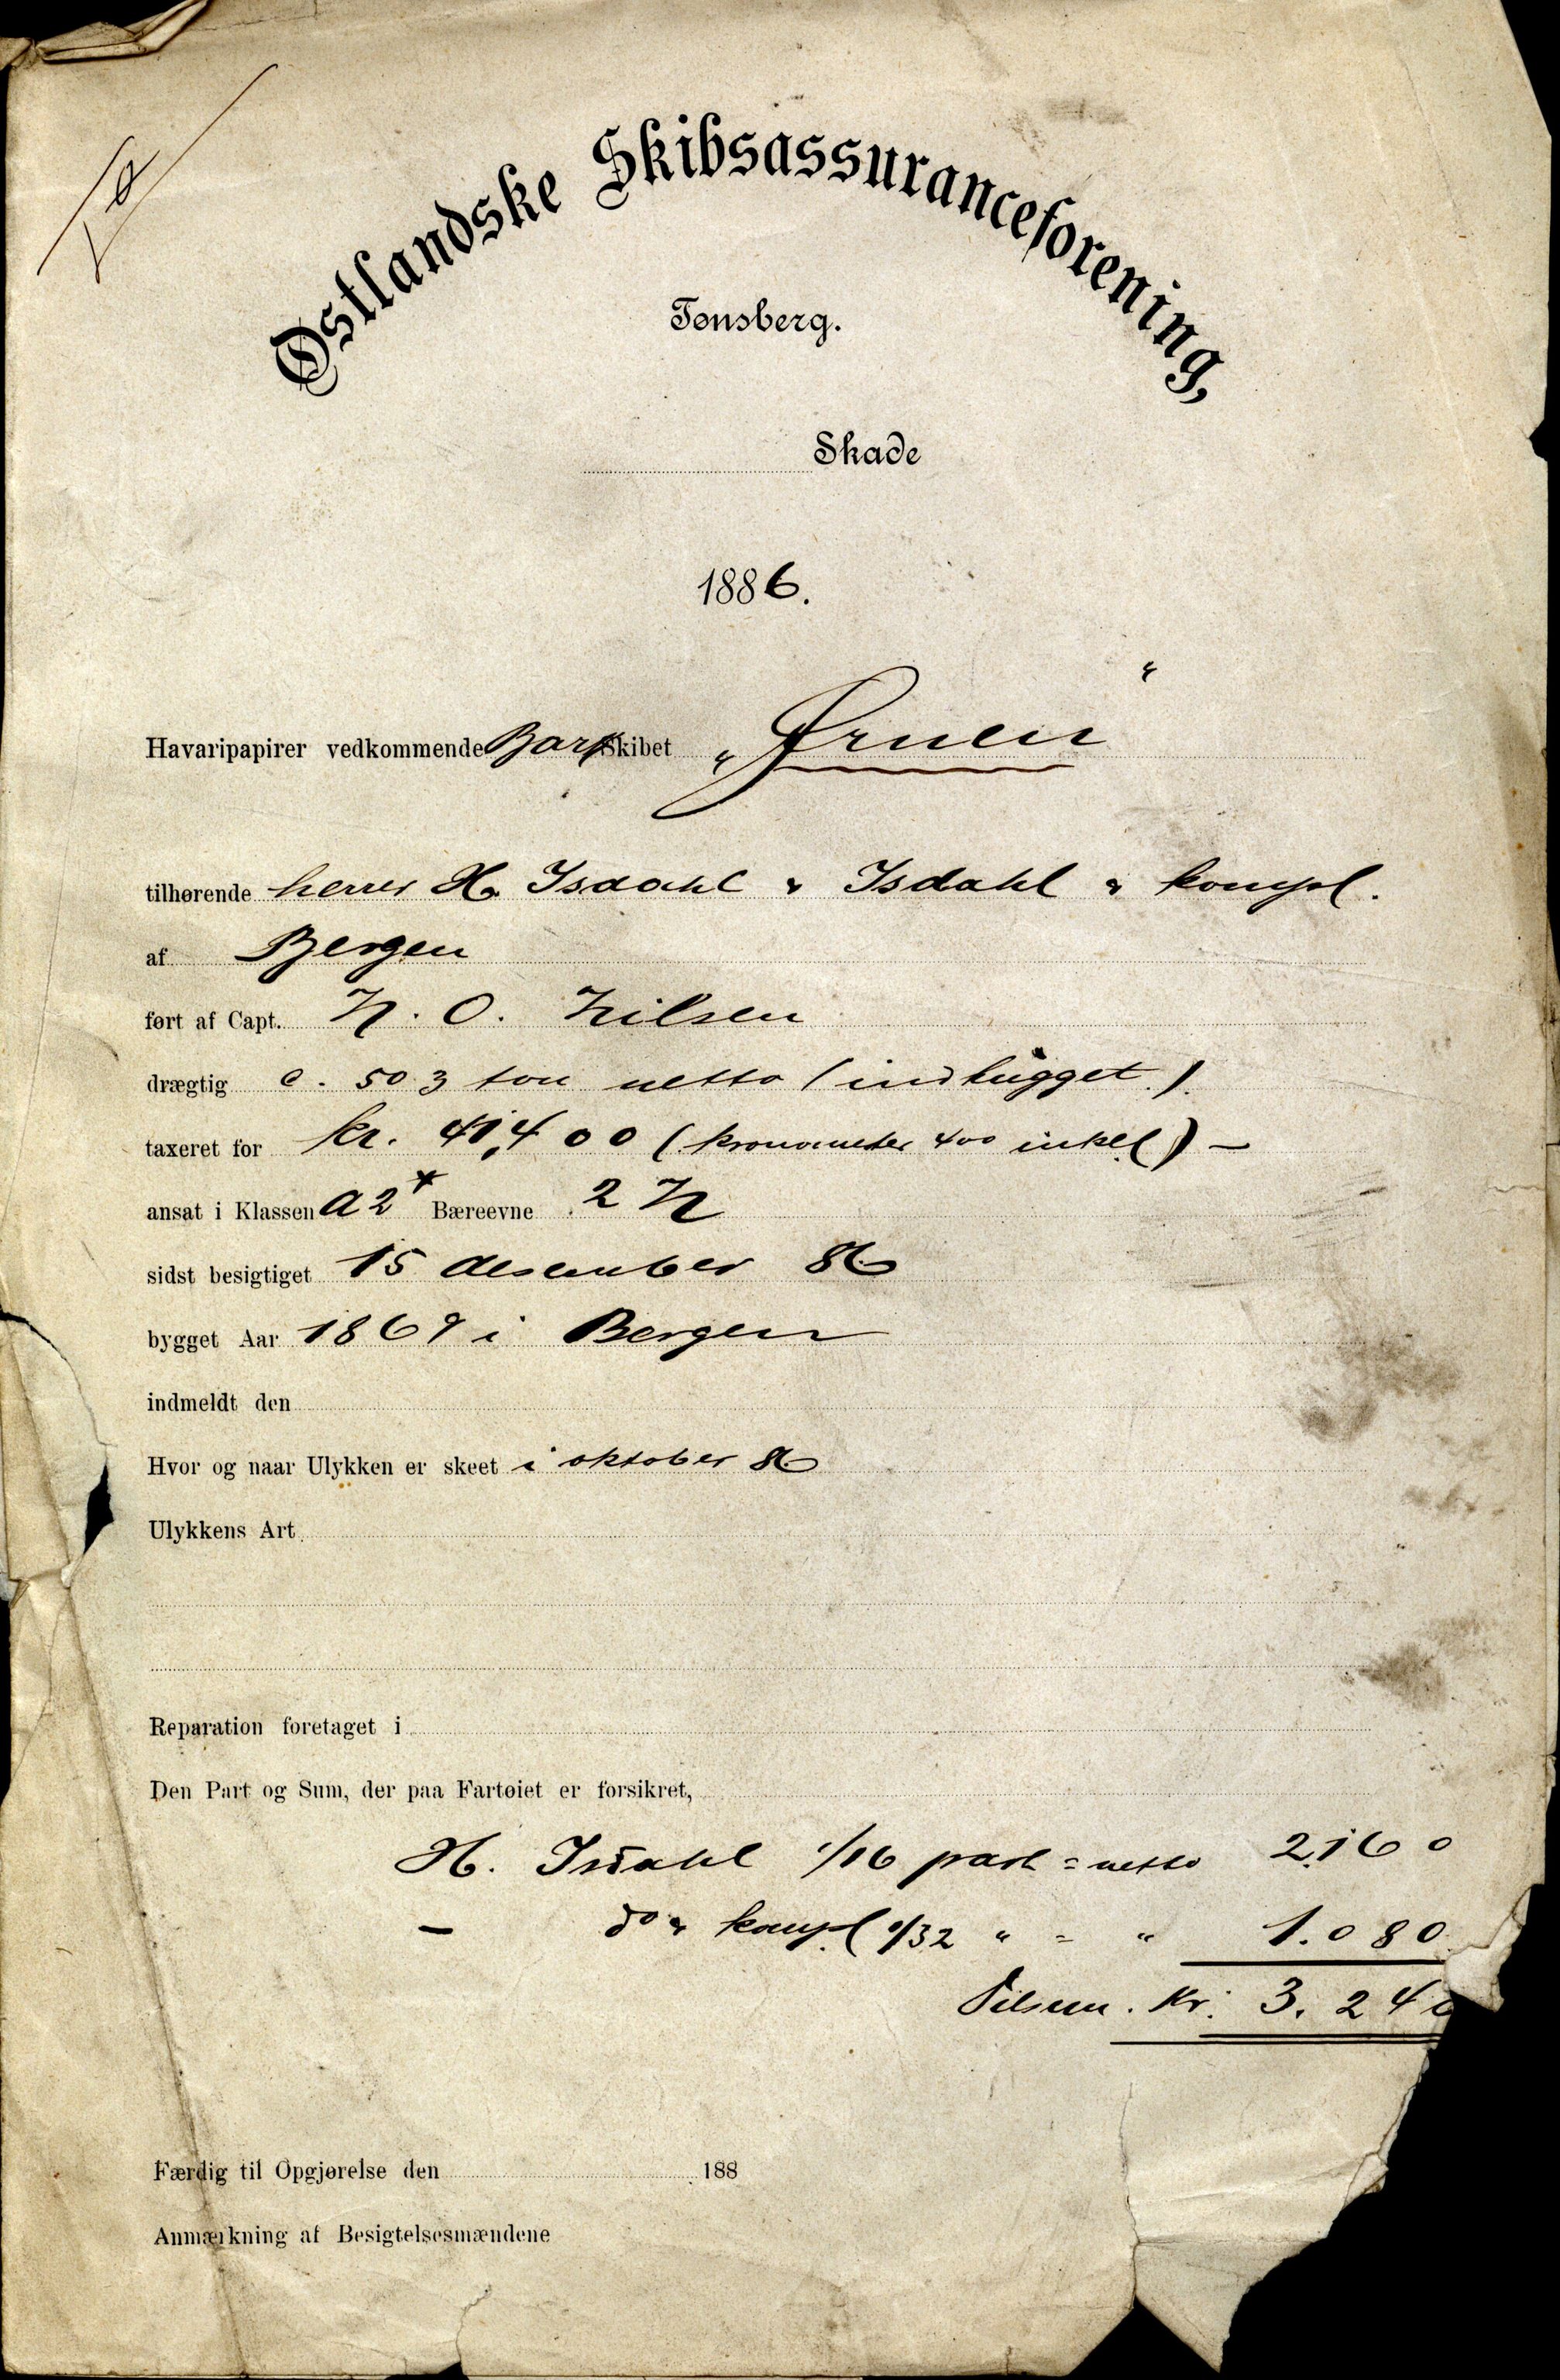 Østlandske Skibsassuranceforening,
Tønsberg.
Skade
1886.
Havaripapirer vedkommende Bark Skibet „Ørnen“
tilhørende herrer H. Isdahl & Isdahl & kompl.
af Bergen
ført af Capt. N. O. Nilsen
drægtig c. 503 ton netto (indhugget.)
taxeret for kr. 41,400 (kronometer 400 inkl) –
ansat i Klassen A2* Bæreevne 2 N
sidst besigtiget 15 desember 86
bygget Aar 1869 i Bergen
indmeldt den
Hvor og naar Ulykken er skeet i oktober 86
Ulykkens Art
Reparation foretaget i
Den Part og Sum, der paa Fartøiet er forsikret,
H. Isdahl 1/16 part = netto 2,160
– do & kompl 1/32 " = " 1.080
Tilsam. Kr. 3.240
Færdig til Opgjørelse den 188
Anmærkning af Besigtelsesmændene